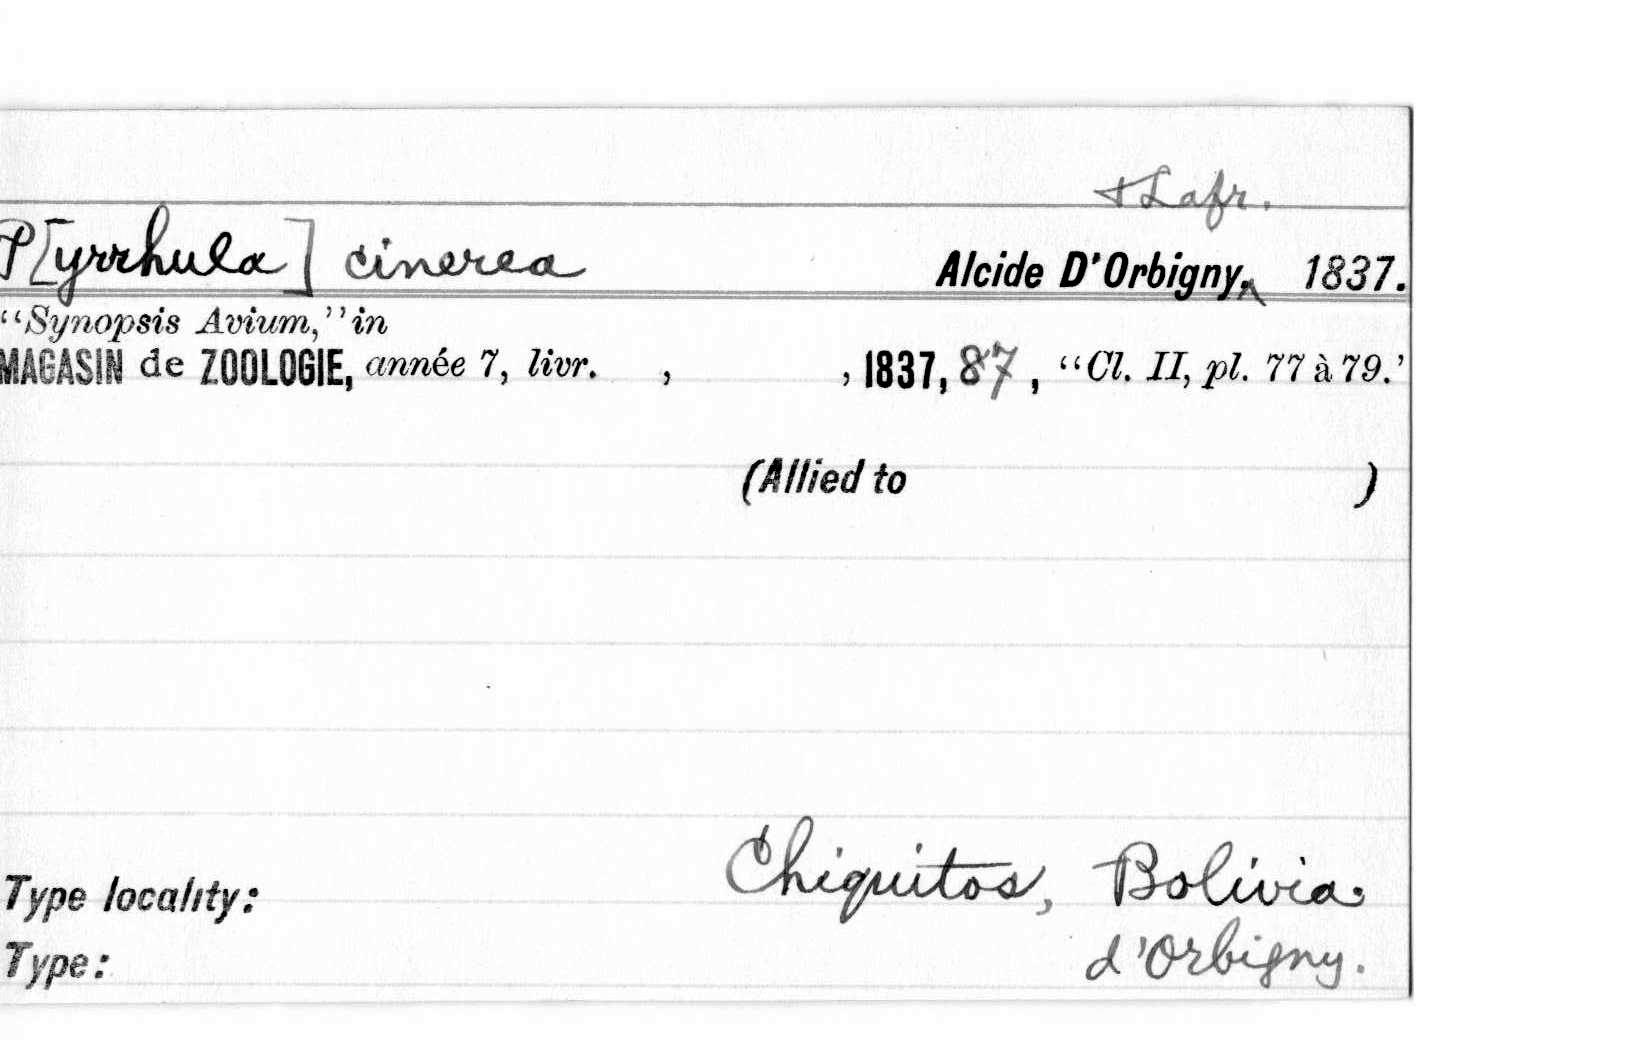 & Lafr.
P[yrrhula] cinerea Alcide D'Orbigny.^ 1837.
“Synopsis Avium,” in
MAGASIN de ZOOLOGIE, année 7, livr. , , 1837, 87, “Cl. II, pl. 77 à 79.’
(Allied to )
Type locality: Chiquitos, Bolivia.
Type: d'Orbigny.